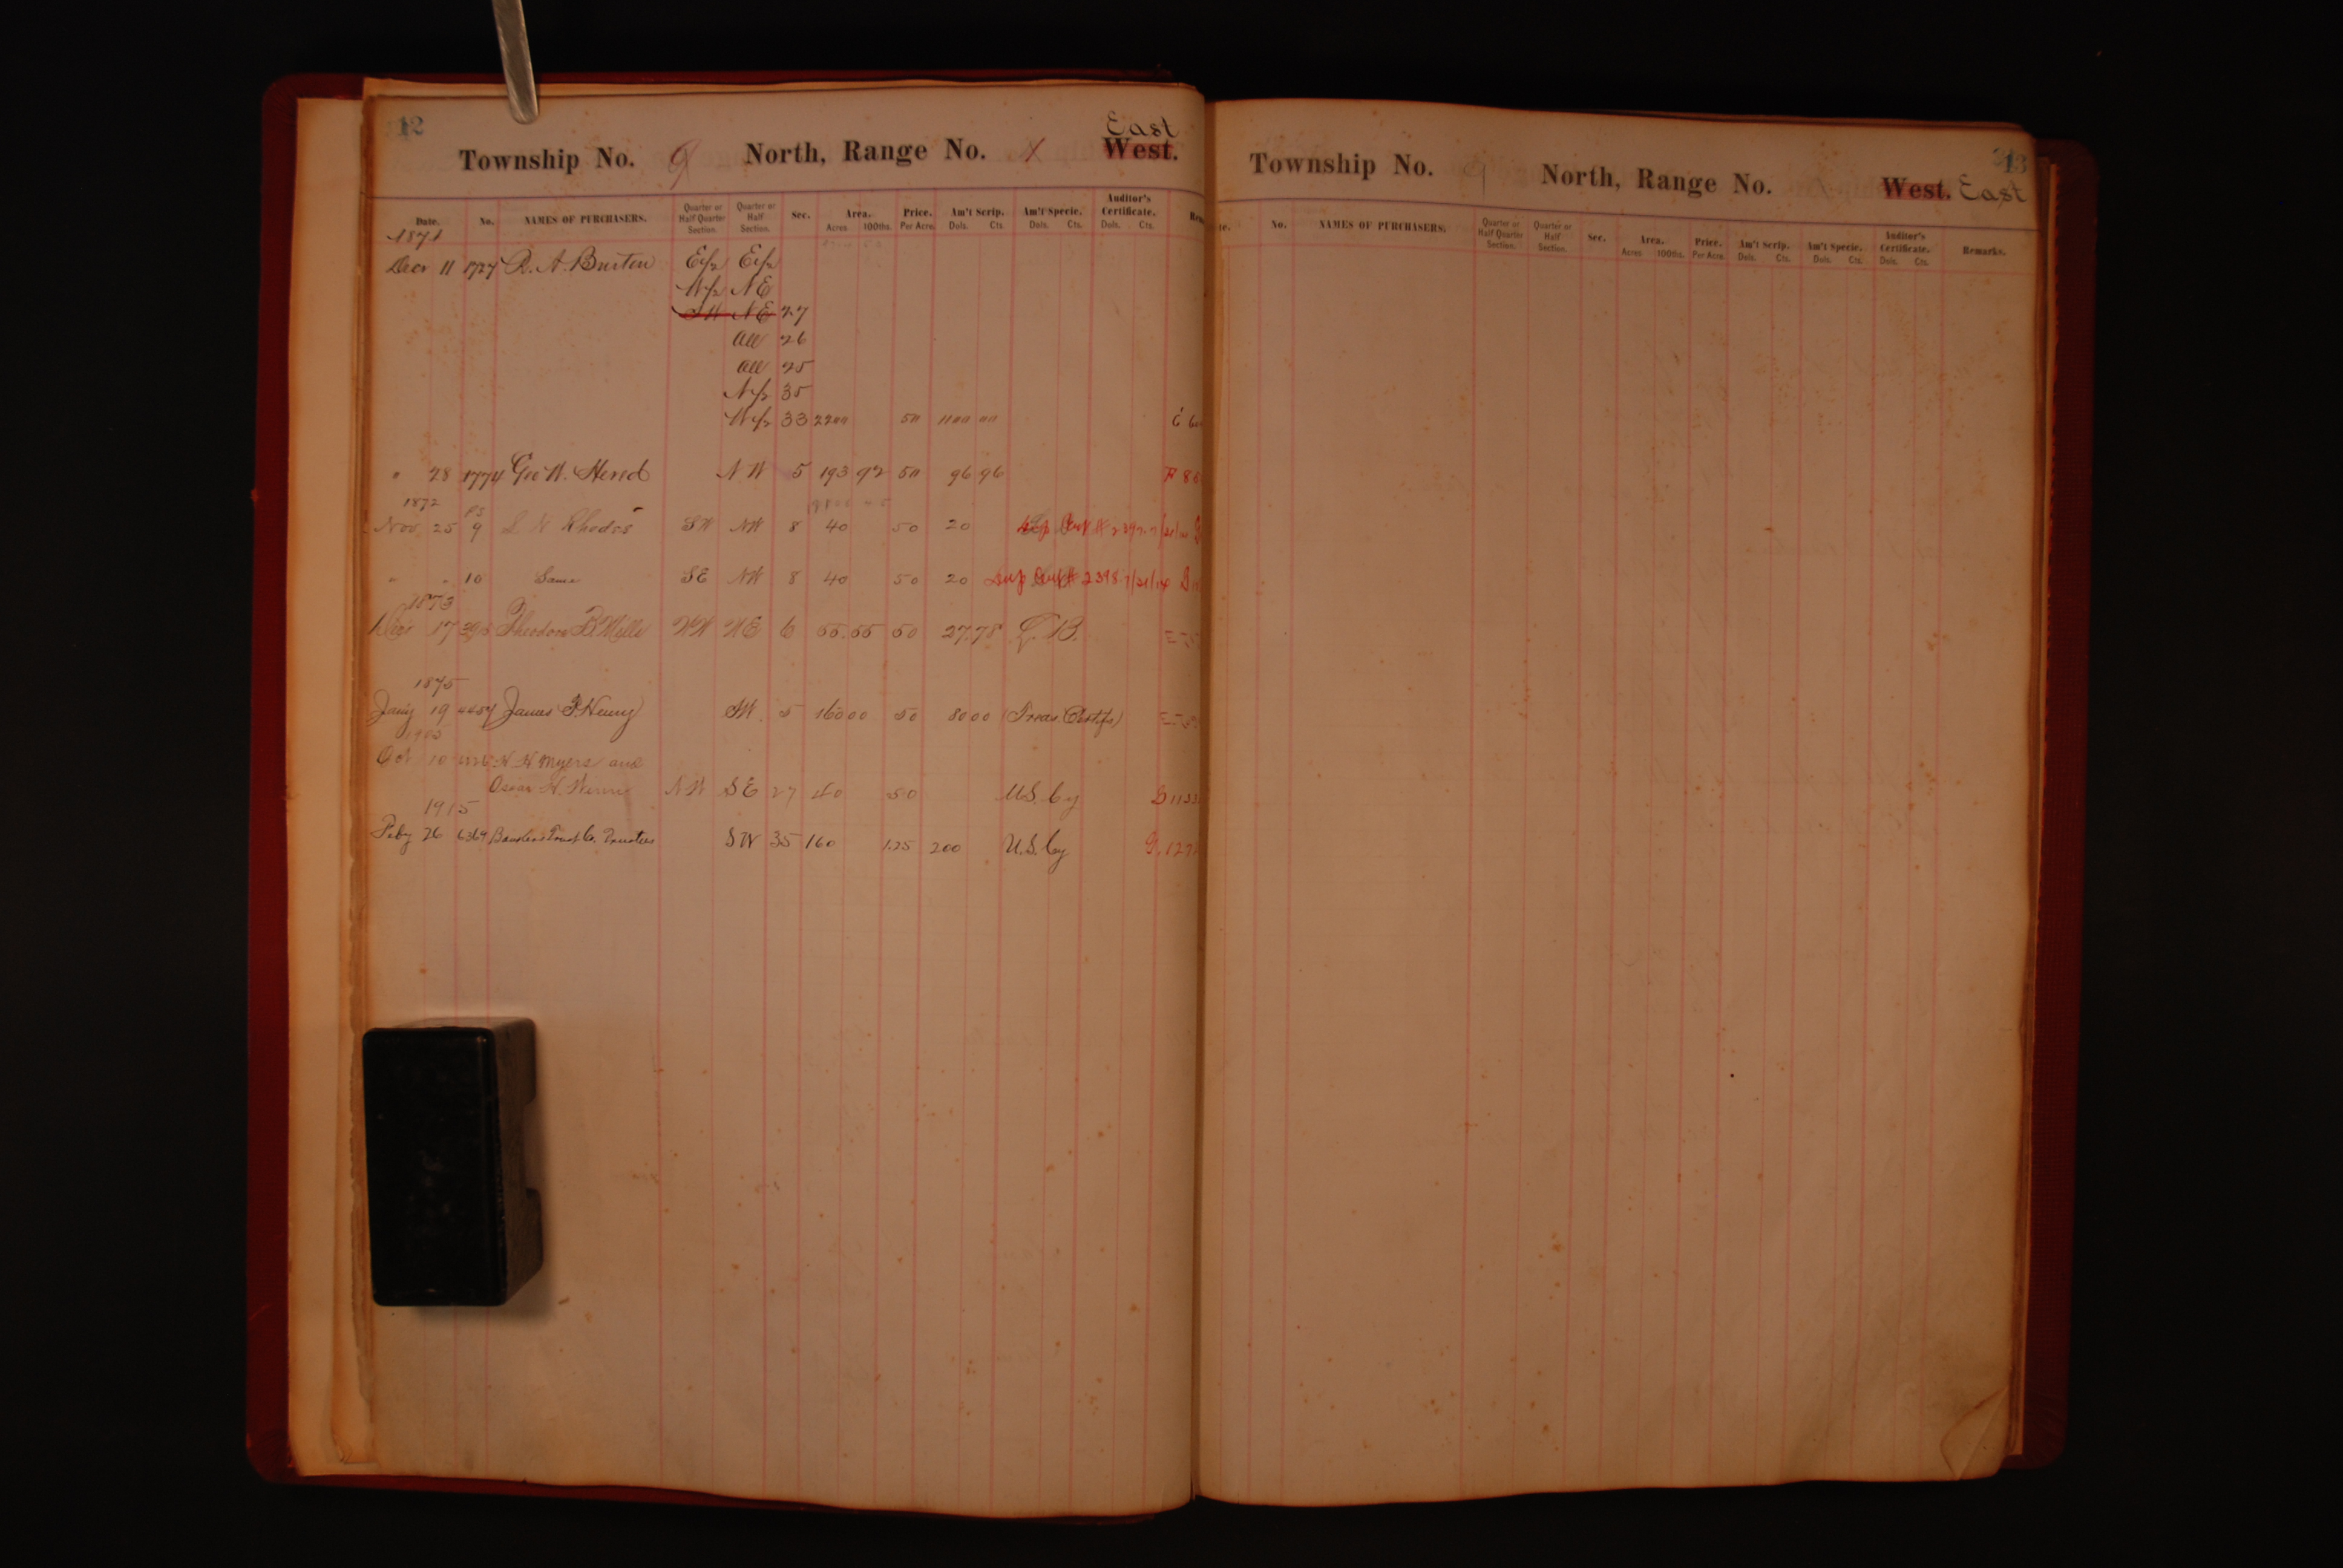 12
East
Township No. 9 North, Range No. 1 West.
Date. No. NAMES OF PURCHASERS. Quarter or Half Quarter Section. Quarter or Half Section. Sec. Area. Acres 100ths. Price. Per Acre. Am't Scrip. Dols. Cts. Am't Specie. Dols. Cts. Auditor's Certificate. Dols. Cts.
1871
Decr 11 1727 R. A. Burton E1/2 E1/2
W1/2 NE
SW NE 27
All 26
All 25
N1/2 35
W1/2 33 2200 50 1100 00
" 28 1774 Geo W. Hered NW 5 193 92 50 96 96
1872
Nov 25 9 L N Rhodes SW NW 8 40 50 20
" " 10 Same SE NW 8 40 50 20 Dup 2398 7/21/14
1873
17 Theodore B Mills NW NE 6 55.55 50 27.78
1875
Jany 19 James F. Henry SW. 5 160 00 50 80 00 (Treas. Certifs)
1905
Oct 10 H H Myers and
Oscar H. NW SE 27 40 .50 U.S. Cy
1915
Feby 26 6369 Bankers Trust Co. Trustees SW 35 160 1.25 200 U.S. Cy
13
Township No. 9 North, Range No. West. East
No. NAMES OF PURCHASERS. Quarter or Half Quarter Section. Quarter or Half Section. Sec. Area. Acres 100ths. Price. Per Acre. Am't Scrip. Dols. Cts. Am't Specie. Dols. Cts. Auditor's Certificate. Dols. Cts. Remarks.